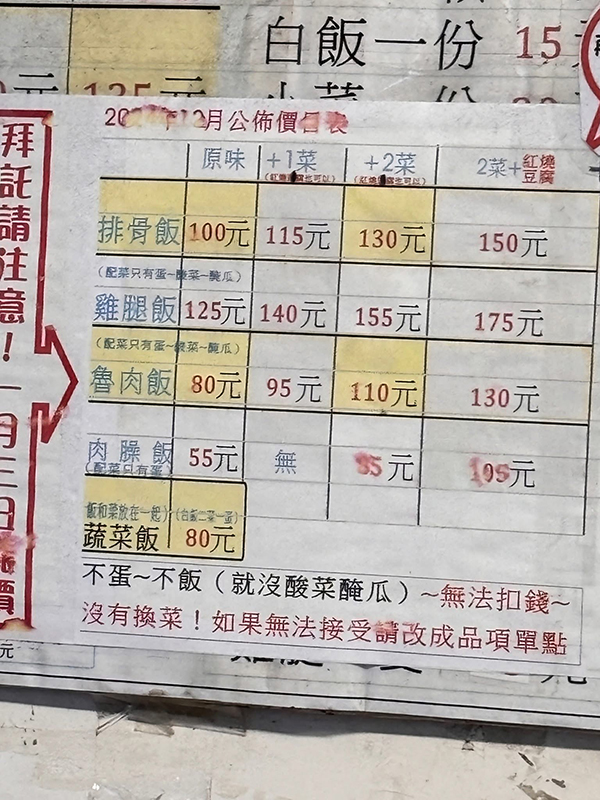 白飯一份 15
月公佈價目表
原味 +1菜 +2菜 2菜+紅燒豆腐
排骨飯 100元 115元 130元 150元
(配菜只有蛋~酸菜~醃瓜)
雞腿飯 125元 140元 155元 175元
(配菜只有蛋~酸菜~醃瓜)
魯肉飯 80元 95元 110元 130元
肉臊飯 55元 無 元 元
(配菜只有蛋)
飯和菜放在一起)
蔬菜飯 80元
不蛋~不飯(就沒酸菜醃瓜)~無法扣錢~
沒有換菜!如果無法接受請改成品項單點
拜託請注意!